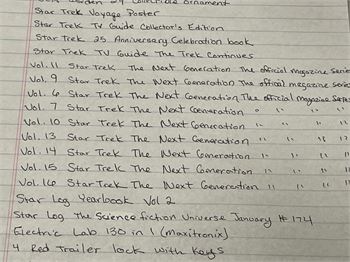 Collectible Ornament
Star Trek Voyage Poster
Star Trek TV Guide Collector's Edition
Star Trek 25 Anniversary Celebration book
Star Trek TV Guide The Trek Continues
Vol. 11 Star Trek The Next Generation The official magazine Serie
Vol. 9 Star Trek The Next Generation The official megazine Serie
Vol. 6 Star Trek The Next Generation The official magazine Series
Vol. 7 Star Trek The Next Generation " " "
Vol. 10 Star Trek The Next Generation " " "
Vol. 13 Star Trek The Next Generation " " " "
Vol. 14 Star Trek The Next Generation " " " "
Vol. 15 Star Trek The Next Generation " " " "
Vol. 16 Star Trek The Next Generation " " " "
Star Log Yearbook Vol 2
Star Log The Science fiction Universe January # 174
Electric Lab 130 in 1 (maxitronix)
4 Red Trailer lock with Keys